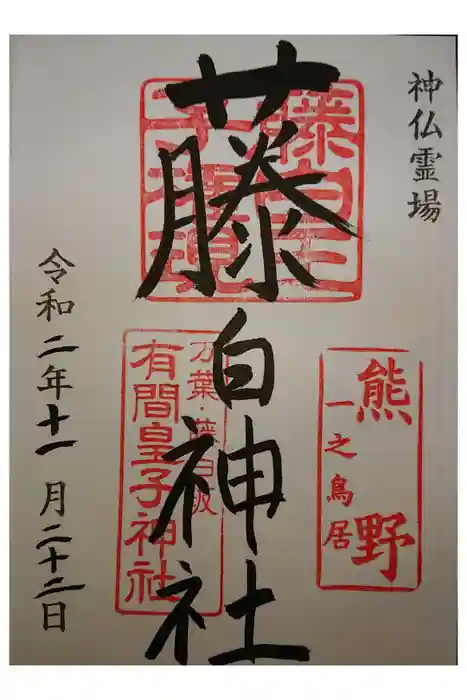 神仏霊場
熊野
一之鳥居
藤白王子権現
藤白神社
万葉・藤白坂
有間皇子神社
令和二年十一月二十二日